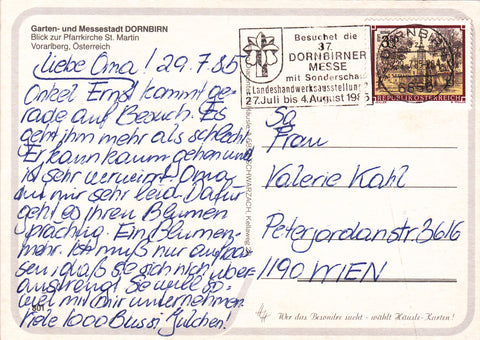 Garten- und Messestadt DORNBIRN
Blick zur Pfarrkirche St. Martin
Vorarlberg, Österreich
Liebe Oma! 29.7.85
Onkel Ernst kommt ge-
rade auf Besuch. Es
geht ihm mehr als schlecht.
Er kann kaum gehen und
ist sehr verwirrt. Oma
tut mir sehr leid. Dafür
geht es ihren Blumen
prächtig. Ein Blumen-
mehr. Ich muß nur aufpas-
sen, daß sie sich nicht über
anstrengt. Sie will so-
viel mit mir unternehmen
Viele 1000 Bussi Julchen!
801
SCHWARZACH, Kellaweg
Besuchet die
37.
DORNBIRNER
MESSE
mit Sonderschau
Landeshandwerksausstellung
27. Juli bis 4. August 1985
DORNBIRN
6850
REPUBLIK ÖSTERREICH
Frau
Valerie Kahl
Peterjordanstr. 36/6
1190 WIEN
Wer das Besondre sucht - wählt Häusle-Karten!